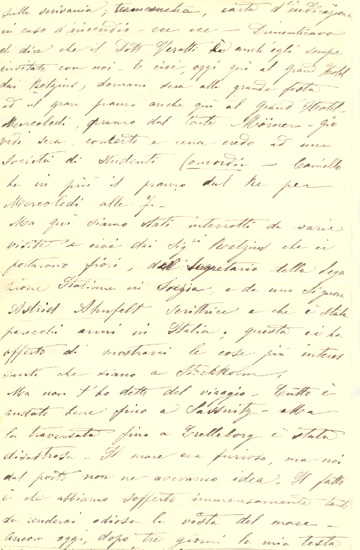 sulla scrivania, carta d'indicazione
in caso d'incendio - ecc ecc - Dimenticavo
di dire che il Dott Veratti è anch'egli sempre
invitato con noi. Io cioè oggi qui al grand Hotel
dai Retzius, domani sera alla grande festa
ed il gran pranzo anche qui al Grand Hotel.
Mercoledì pranzo dal Conte Mörner - Gio
vedi sera concerto e cena credo ad una
Società di Studenti Concordia - Camillo
ha in più il pranzo dal Re per
Mercoledì alle 7.-
Ma qui siamo stati interrotti da varie
visite a cioè dai Sigri Retzius che ci
portarono fiori, dal segretario della lega
zione Italiana in Svezia e da una Signora
Astrid Ahnfelt Scrittrice e che è stata
parecchi anni in Italia; questa ci ha
offerto di mostrarci le cose più interes
santi che siano a Stockholm.
Ma non t'ho detto del viaggio - Tutto è
andato bene fino a Sassnitz - Ma
la traversata fino a Trelleborg è stata
disastrosa. Il mare era furioso, ma noi
dal porto non ne avevamo idea. Il fatto
è che abbiamo sofferto immensamente tanto
da renderci odiosa la vista del mare -
Ancora oggi, dopo tre giorni la mia testa